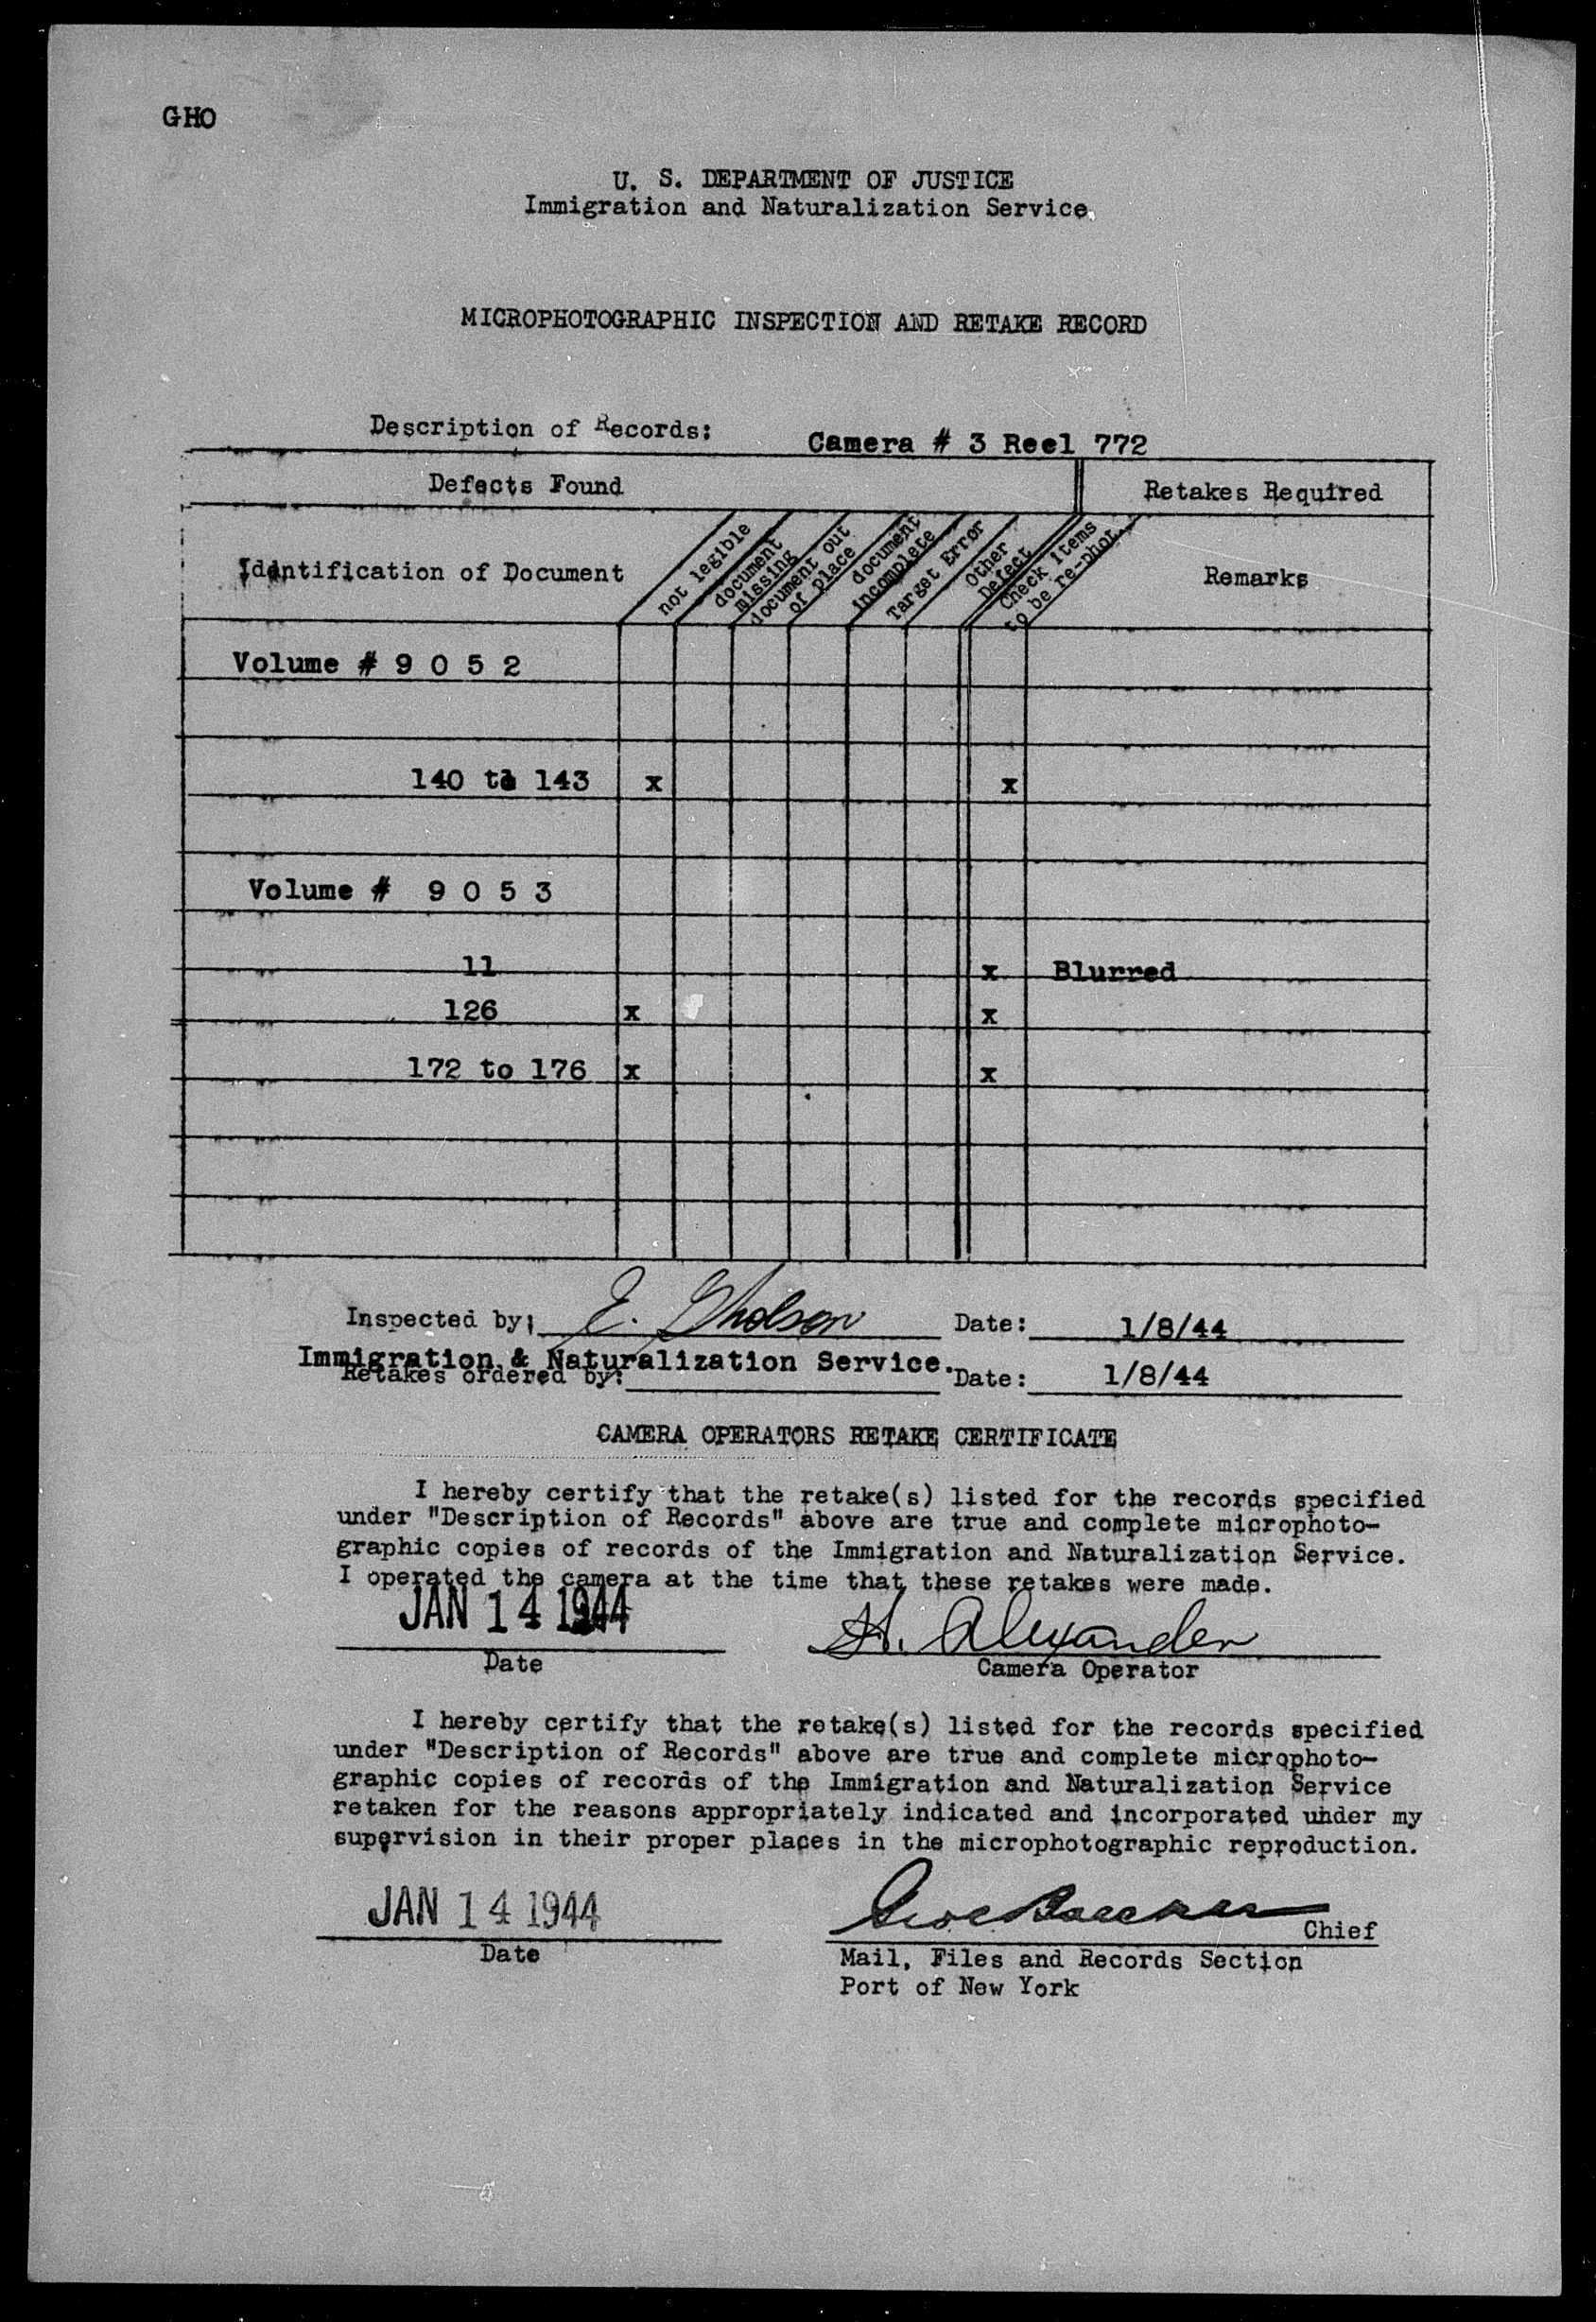 GHO
U. S. DEPARTMENT OF JUSTICE
Immigration and Naturalization Service
MICROPHOTOGRAPHIC INSPECTION AND RETAKE RECORD
Description of Records: Camera # 3 Reel 772
Defects Found Retakes Required
Identification of Document not legible document missing document out of place document incomplete Target Error Other Defect Check items to be re-phot. Remarks
Volume # 9 0 5 2
140 to 143 x x
Volume # 9 0 5 3
11 x Blurred
126 x x
172 to 176 x x
Inspected by: E. Gholson Date: 1/8/44
Immigration & Naturalization Service.
Retakes ordered by: Date: 1/8/44
CAMERA OPERATORS RETAKE CERTIFICATE
I hereby certify that the retake(s) listed for the records specified
under "Description of Records" above are true and complete microphoto-
graphic copies of records of the Immigration and Naturalization Service.
I operated the camera at the time that these retakes were made.
JAN 14 1944 H. Alexander
Date Camera Operator
I hereby certify that the retake(s) listed for the records specified
under "Description of Records" above are true and complete microphoto-
graphic copies of records of the Immigration and Naturalization Service
retaken for the reasons appropriately indicated and incorporated under my
supervision in their proper places in the microphotographic reproduction.
JAN 14 1944
Chief
Date
Mail, Files and Records Section
Port of New York